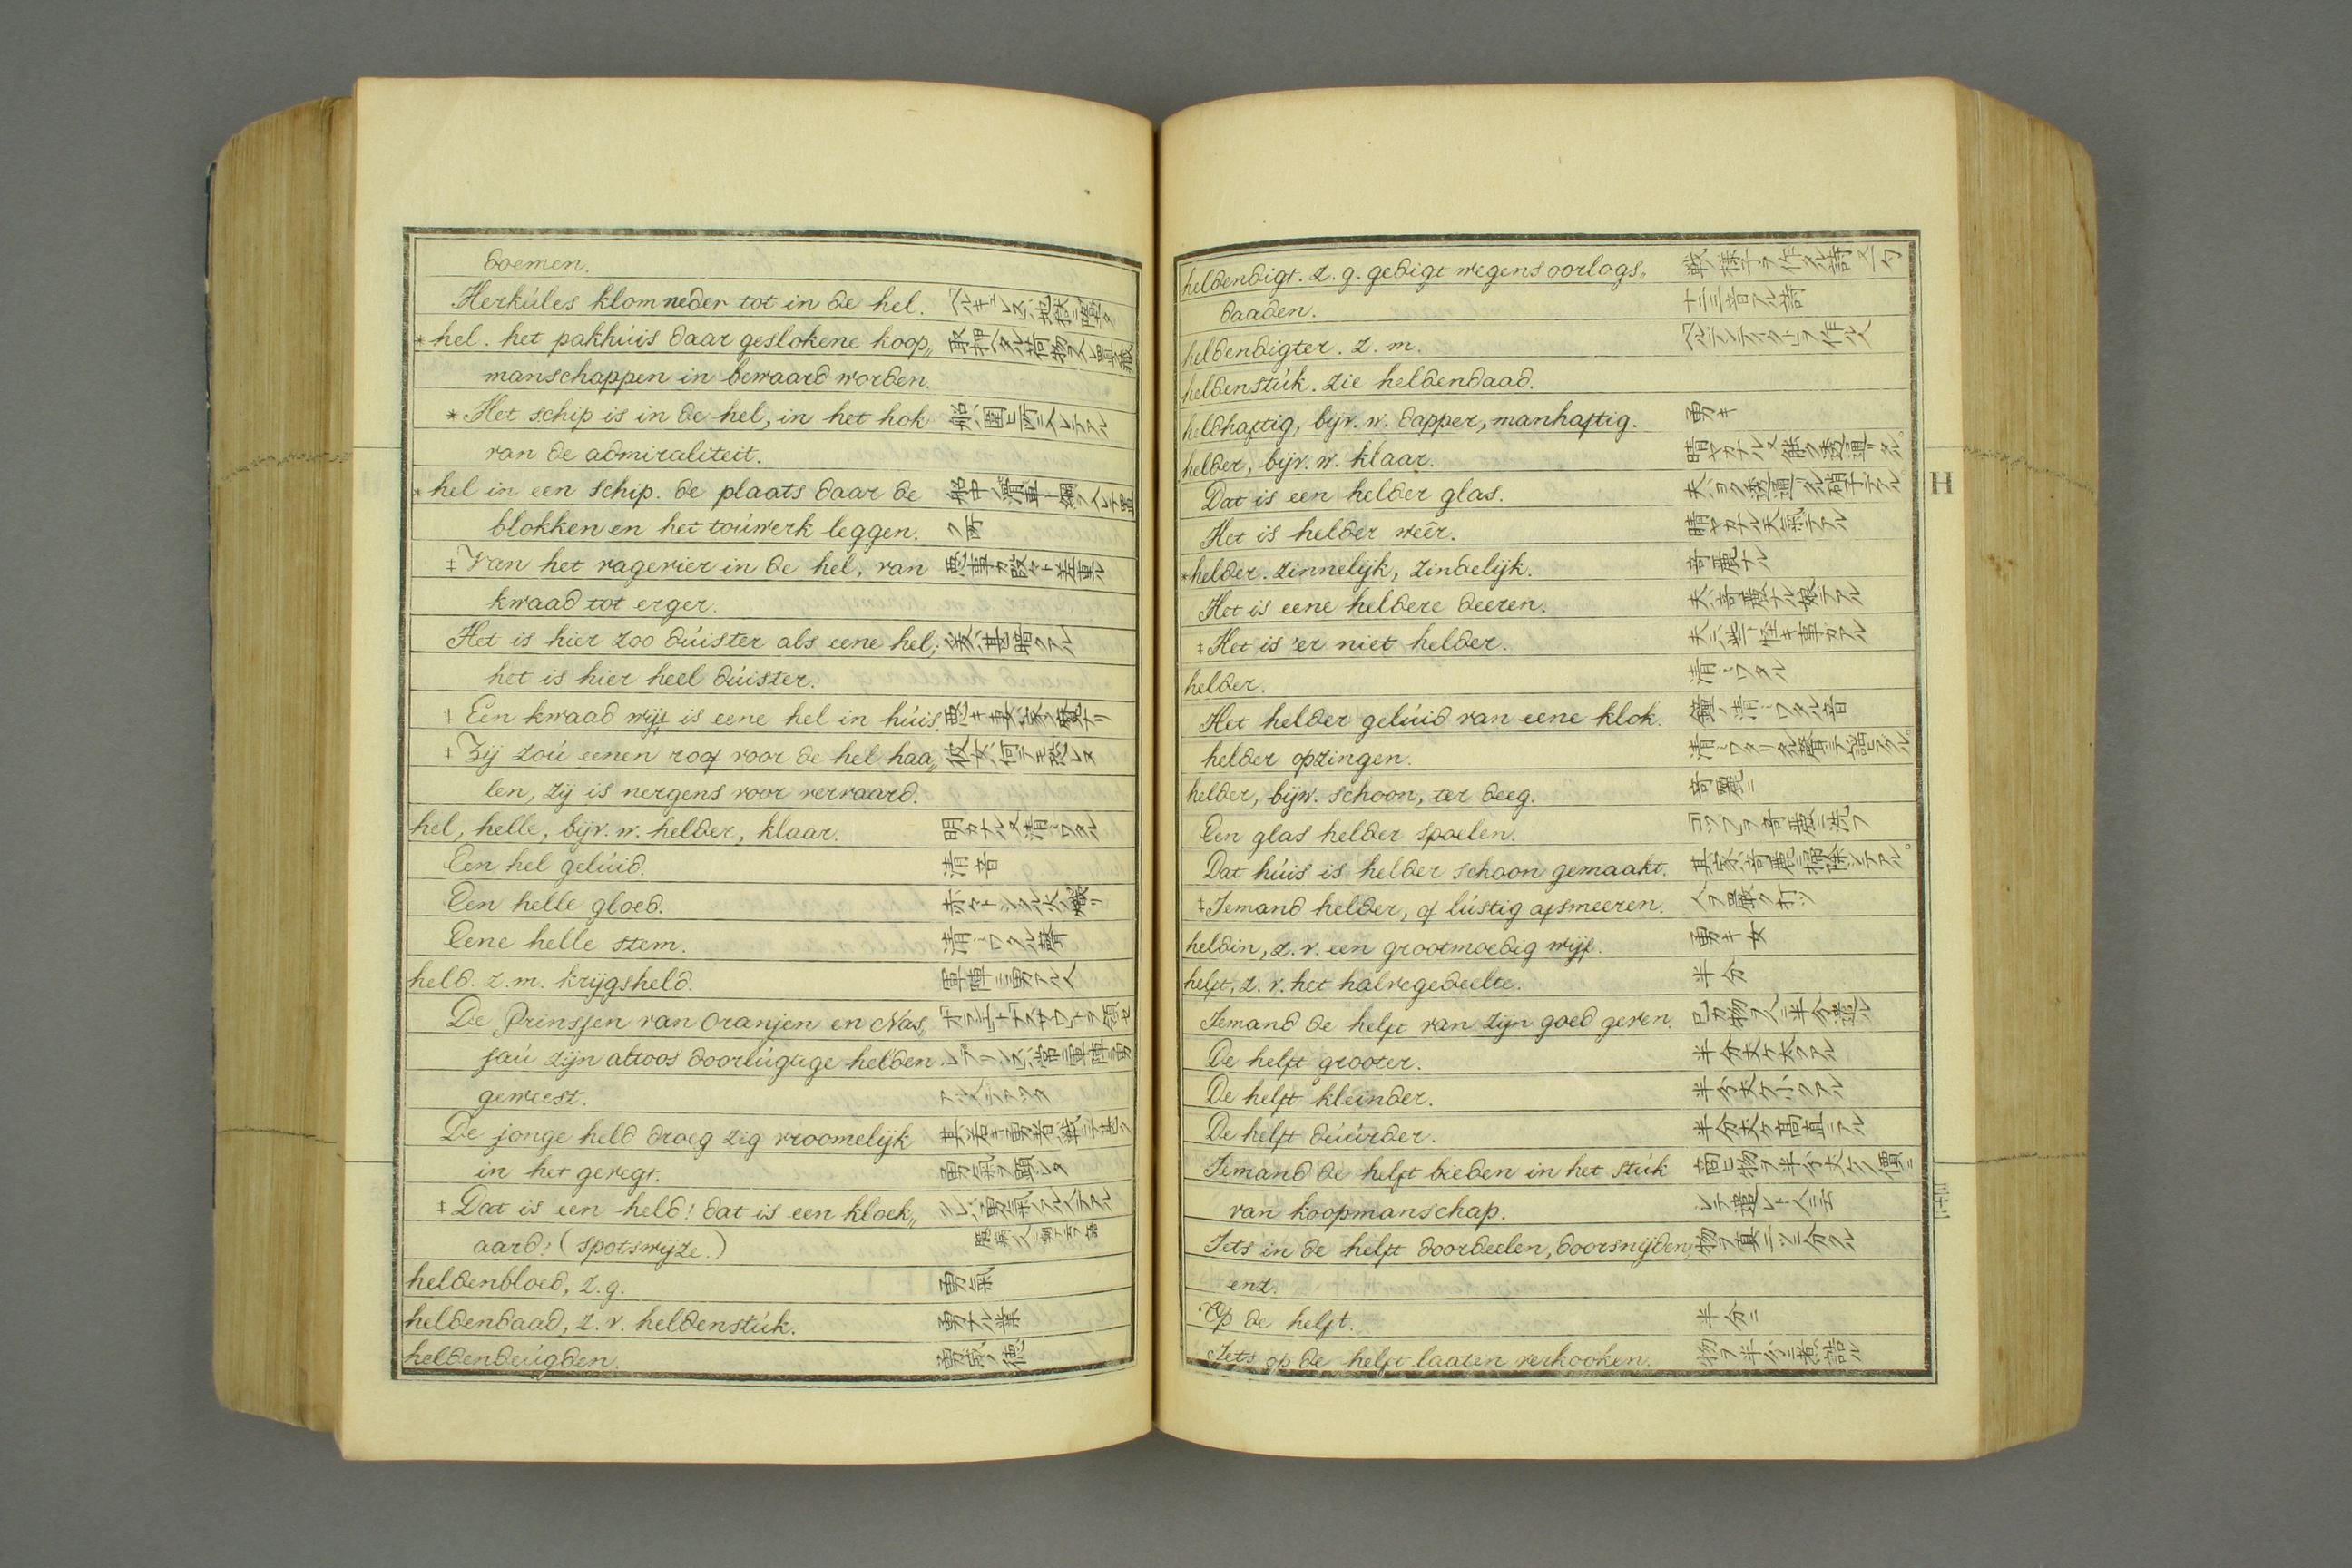 doemen.
Herkúles klom neder tot in de hel.
* hel. het pakhúis daar geslokene koop„
manschappen in bewaard worden.
* Het schip is in de hel, in het hok
van de admiraliteit.
* hel in een schip. de plaats daar de
blokken en het toúwerk leggen. ク所
‡ Van het vagevier in de hel, van
kwaad tot erger.
Het is hier zoo dúister als eene hel;
het is hier heel dúister.
‡ Een kwaad wijf is eene hel in húis.
‡ Zij zoú eenen roof voor de hel haa„
len, zij is nergens voor vervaard.
hel, helle, bijv. w. helder, klaar. 明カナル又清ミワタル
Een hel gelúid. 清音
Een helle gloed.
Eene helle stem. 清ミワタル聲
held. z. m. krijgsheld. 軍陣ニ勇アル人
De Prinsſen van Oranjen en Nas„
ſaú zijn altoos doorlúgtige helden
geweest.
De jonge held droeg zig vroomelijk
in het gevegt. 勇氣ヲ顕シタ
‡ Dat is een held! dat is een kloek„
aard! (spotswijze.)
heldenbloed, z. g. 勇氣
heldendaad, z. v. heldenstúk. 勇ナル業
heldendeúgden. 勇威ノ徳
heldendigt. z. g. gedigt wegens oorlogs„
daaden. 十二三音アル詩
heldendigter. z. m.
heldenstúk. zie heldendaad.
heldhaftig, bijv. w. dapper, manhaftig. 勇キ
helder, bijv. w. klaar.
Dat is een helder glas.
Het is helder weêr. 晴ヤカナル天氣テアル
* helder. zinnelijk, zindelijk. 奇麗ナル
Het is eene heldere deeren. 夫ハ奇麗ナル娘テアル
‡ Het is 'er niet helder.
helder. 清ミワタル
Het helder gelúid van eene klok. 鐘ノ清ミワタル音
helder opzingen.
helder, bijw. schoon, ter deeg. 奇麗ニ
Een glas helder spoelen. コップヲ奇麗ニ洗フ
Dat húis is helder schoon gemaakt.
‡ Iemand helder, of lústig afsmeeren. 人ヲ嚴ク打ツ
heldin, z. v. een grootmoedig wijf. 勇キ女
helft, z. v. het halvegedeelte. 半分
Iemand de helft van zijn goed geven.
De helft grooter. 半分丈ケ大クアル
De helft kleinder. 半分丈ケ小クアル
De helft dúúrder. 半分丈ケ高直ニアル
Iemand de helft bieden in het stúk
van koopmanschap.
Iets in de helft doordeelen, doorsnijden, 物ヲ真二ツニ分クル
enz.
Op de helft. 半分ニ
Iets op de helft laaten verkooken.
H